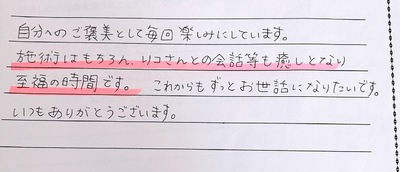 自分へのご褒美として毎回楽しみにしています。
施術はもちろん、リコさんとの会話等も癒しとなり
至福の時間です。 これからもずっとお世話になりたいです。
いつもありがとうございます。